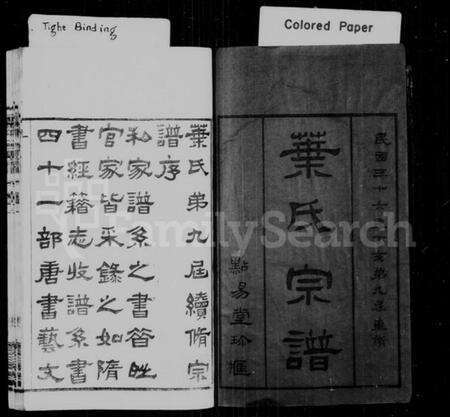 Tight Binding
Colored Paper
民國三十六
亥第九届續
葉氏宗譜
點易堂珍匯
葉氏第九届續脩宗
譜序
私家譜系之書昔時
官家皆采錄之如隋
書經籍志收譜系書
四十一部唐書藝文
FamilySearch